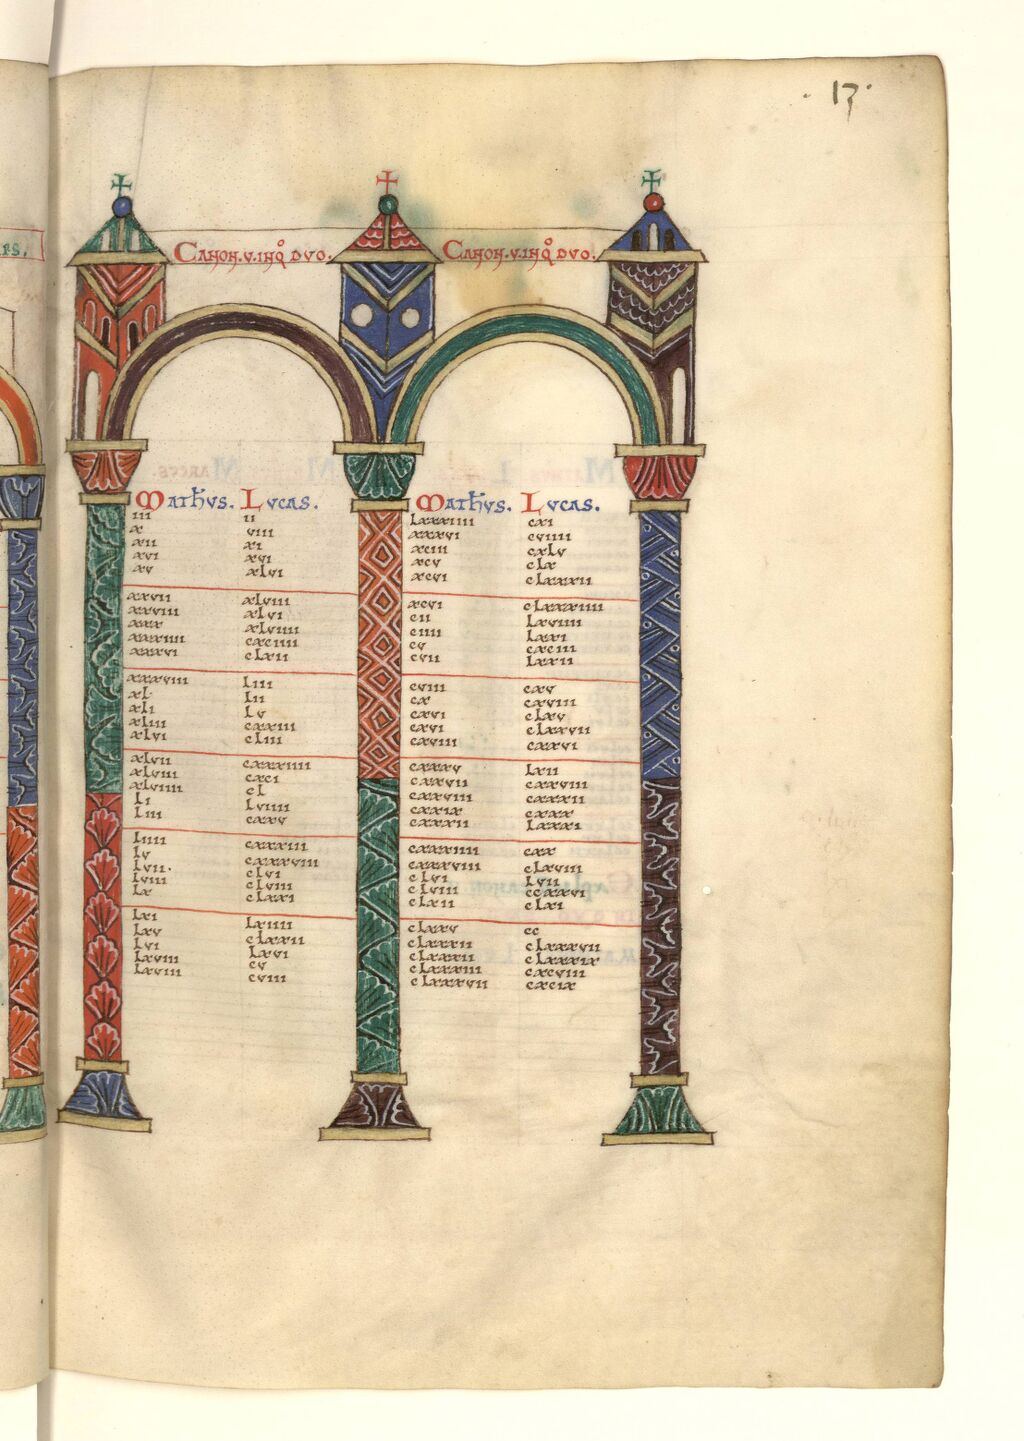 ·17·
Canon·v·inqͦ duo. Canon·v·inqͦ duo.
Mathꝰvs. Lucas. Mathꝰvs. Lucas.
iii ii
x viii
xii xi
xvi xvi
xv xlvi
xxvii xlviii
xxviii xlvi
xxx xlviiii
xxxiiii cxciiii
xxxvi clxii
xxxviii liii
xl· lii
xli lv
xliii cxxiii
xlvi cliii
xlvii cxxxiiii
xlviii cxci
xlviiii cl
li lviiii
liii cxxv
liiii cxxxiii
lv cxxxviii
lvii· clvi
lviii clviii
lx clxxi
lxi lxiiii
lxv clxxii
lvi lxvi
lxviii cv
lxviii cviii
lxxxiiii cxi
xxxvi cviiii
xciii cxlv
xcv clx
xcvi clxxxii
xcvi clxxxiiii
cii lxviiii
ciiii lxxi
cv cxciii
cvii lxxii
cviii cxv
cx cxviii
cxvi clxv
cxvi clxxvii
cxviii cxxvi
cxxxv lxii
cxxvii cxxviii
cxxviii cxxxii
cxxix cxxx
cxxxii lxxxi
cxxxiiii cxx
cxxxviii clxviii
clvi lvii
clviii ccxxvi
clxii clxi
clxxv cc
clxxxii clxxxvii
clxxxii clxxxix
clxxxiii cxcviii
clxxxvii cxcix